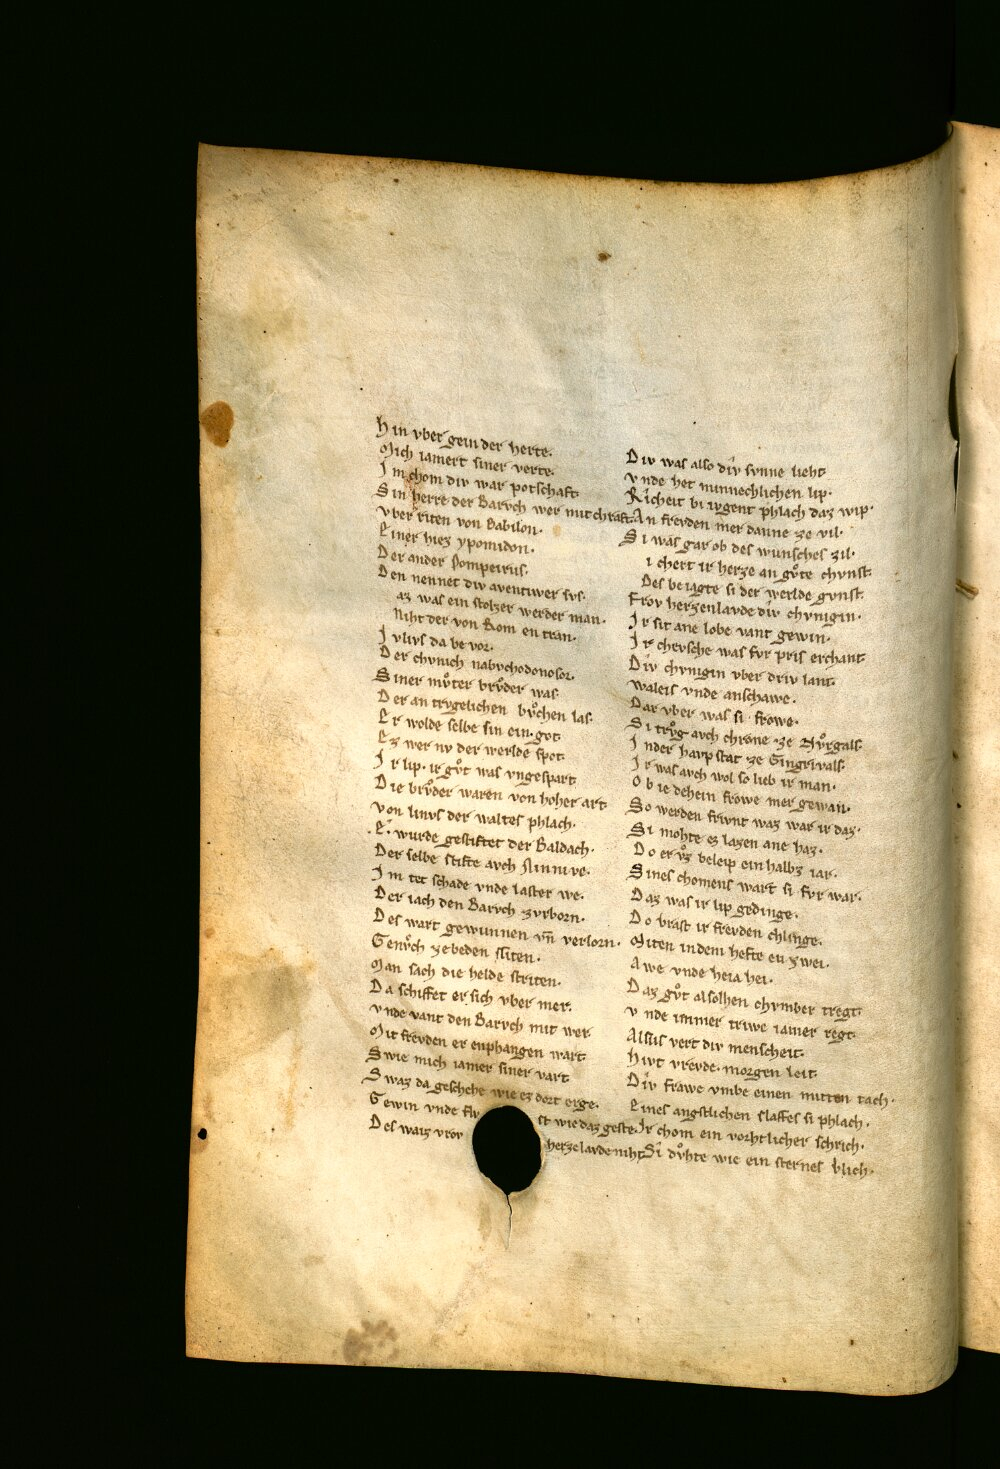 Hin vber gein der herte.
Mich iamert siner verte.
Im chom div war potschaft
Sin herre der Barvch wer mit chraft
Vber riten von Babilon.
Einer hiez ypomidon.
Der ander Pompeirus.
Den nennet div aventiwer svs.
az was ein stolzer werder man.
Niht der von Rom en tran.
Ivlivs da be vor.
Der chvnich nabvchodonosor.
Siner mvͦter brvͦder was
Der an trvgelichen bvͦchen las.
Er wolde selbe sin ein got
Ez wer nv der werlde spot
Ir lip. ir gvͦt was vngespart
Die brvͦder waren von hoher art
Von Ninvs der waltes phlach.
E. wurde gestiftet der Baldach.
Der selbe stifte avch Ninnive.
Im tet schade vnde laster we.
Der iach den Barvch zvrborn.
Des wart gewunnen vn̄ verlorn.
Genvͦch ze beden sliten.
Man sach die helde striten.
Da schiffet er sich vber mer.
Vnde vant den Barvch mit wer
Mit frevden er enphangen wart
Swie mich iamer siner vart
Swaz da geschehe wie ez dort erge.
Gewin vnde flv st wie daz geste.
Des waiz vrov herzelavde niht
Div was also div svnne lieht
Vnde het minnechlichen lip.
Richeit bi ivgent phlach daz wip.
An frevden mer danne ze vil.
Si was gar ob des wunsches zil.
i chert ir herze an gvͦte chvnst
Des beiagte si der werlde gvnst
Frov herzenlavde div chvnigin.
Ir sit ane lobe vant gewin.
Ir chevsche was fvr pris erchant
Div chvnigin vber driv lant.
Waleis vnde anschawe.
Dar vber was si frowe.
Si trvͦg avch chrone ze Nvͦrgals
In der havpstat ze Gingrivals.
Ir was avch wol so lieb ir man.
Ob ie dehein frowe mer gewan.
So werden frivnt waz war ir daz.
Si mohte ez lazen ane haz.
Do er vͦz beleip ein halbz iar.
Sines chomens wart si fvr war.
Daz was ir lip gedinge.
Do brast ir frevden chlinge.
Miten in dem hefte en zwei.
Awe vnde heia hei.
Daz gvͦt alsolhen chvmber tregt
Vnde immer triwe iamer regt
Alsus vert div menscheit.
Hivt vrevde. morgen leit
Div frawe vmbe einen mitten tach.
Eines angstlichen slaffes si phlach.
Ir chom ein vorhtlicher schrich.
Si dvͦhte wie ein sternes blich.